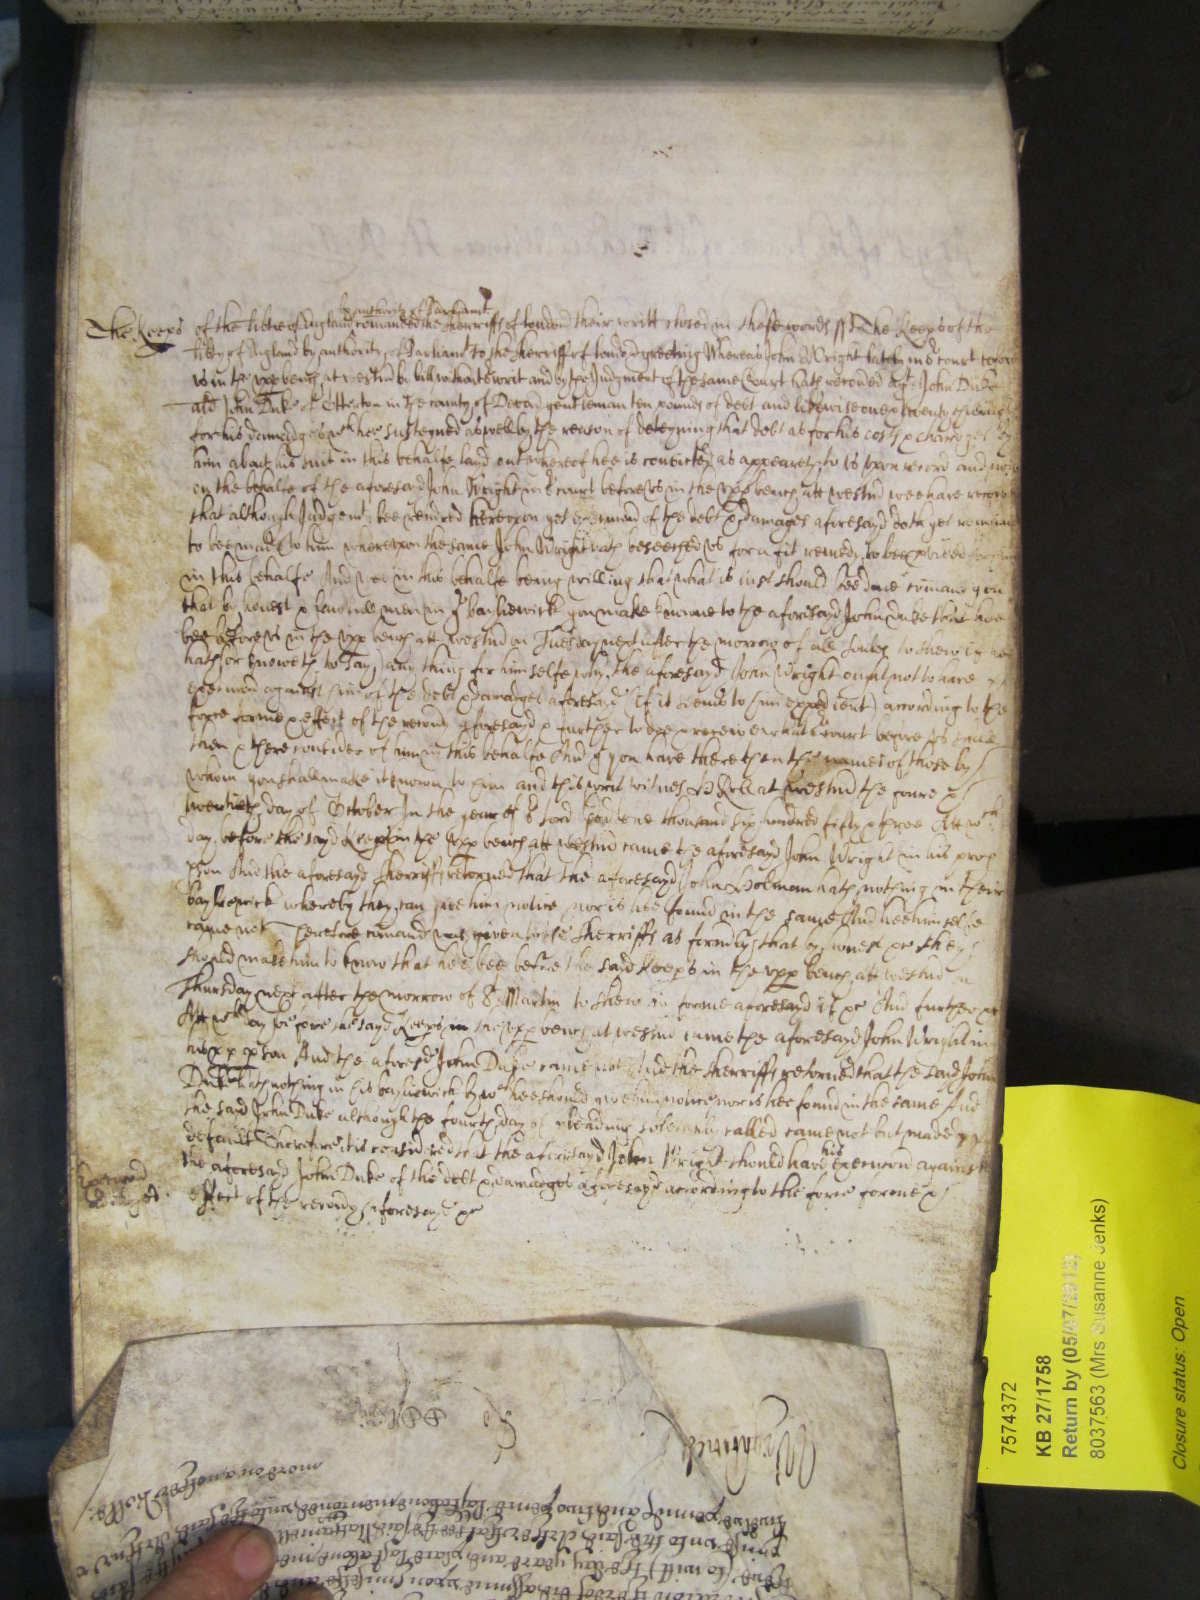 by authority of Parliamt
The Keeps of the libtie of England comanded the Sherriffs of london their writt closed in these words ss The Keeps of the
libty of England by authority of Parliamt to the Sherriff of london greeting Whereas John Wright lately in or court
us in the upp bench at westmr by bill without writ and by the Judgment of the same Court hath recoued agt John Duke
als John Duke of Otterton in the county of Devon gentleman ten pounds of debt and likewise one & twenty
for his damadges wch hee sustegned as well by the reason of deteyning that debt as for his costs & charges by
him about his suit in this behalfe layd out whereof hee is convicted as appeareth to us upon record and now
on the behalfe of the aforesayd John Wright in or court before us in the upp bench att westmr wee have
that although Judgent bee rendred hereupon yet execucon of the debt & damages aforesayd doth yet remaine
to bee made to him whereupon the same John Wright hath beseeched us for a fit remedy to bee pvided
in this behalfe And wee in this behalfe being willing that what is iust should bee done comand you
that by honest & lawfull men in yr bayliewick you make knowne to the aforesayd John Duke that hee
bee before us in the upp bench att westmr on Tuesday next after the morrow of all Soules to shew if hee
hath (or knoweth to say) any thing for himselfe why the aforesayd John Wright ought not to have
execucon against him of the debt & damadges aforesayd (If it seems to him expedient) according to the
force forme & effect of the recoury aforesayd & further to doe & receive what or Court before us shall
then & there consider of him in this behalfe And yt you have there then the names of those by
whom you shall make it known to him and this writ witnes H Roll at westmr the foure &
twentieth day of October In the year of or Lord God one thousand six hundred fifty & three Att wch
day before the sayd Keeps in the upp bench att westmr came the aforesayd John Wright in his prop
pson And the aforesayd Sherriffs retorned that the aforesayd John Holman hath nothing in their
bayliewick whereby they can give him notice nor is hee found in the same And hee himselfe
came not Therefore comand was given to the Sherriffs as formly that by honest &c they
should make him to know that hee bee before the said Keeps in the upp bench att westmr on
Thursday next after the morrow of St Martin to shew in forme aforesayd if &c And further &c
Att wch day before the sayd Keeps in the upp bench at westmr came the aforesayd John Wright in
his pp pson And the aforesd John Duke came not And the Sherriffs retorned that the said John
Duke hath nothing in his bayliewick by wch hee should give him notice nor is hee found in the same And
the said John Duke although the fourth day of pleading solemnly called came not but made
default Therefore it is considered that the aforesayd John Wright should have his execucon against
the aforesayd John Duke of the debt & damadges aforesayd according to the force forme &
effect of the recoury aforesayd &c
7574372
KB 27/1758
Return by (05/07/2012)
8037563 (Mrs Susanne Jenks)
Closure status: Open